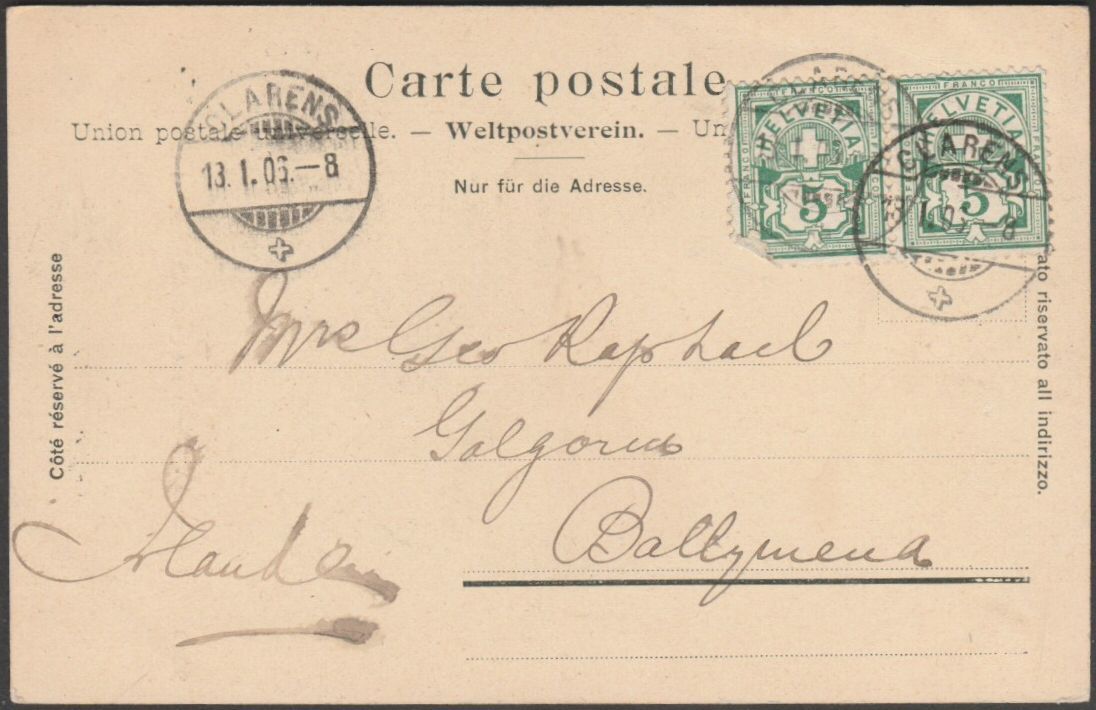 Carte postale
Union postale universelle. — Weltpostverein. — Un
Nur für die Adresse.
CLARENS
13.1.06.—8
FRANCO
HELVETIA
5
FRANCO
HELVETIA
5
CLARENS
8
Côté réservé à l'adresse
ato riservato all indirizzo.
Mrs Geo Raphael
Galgorm
Ballymena